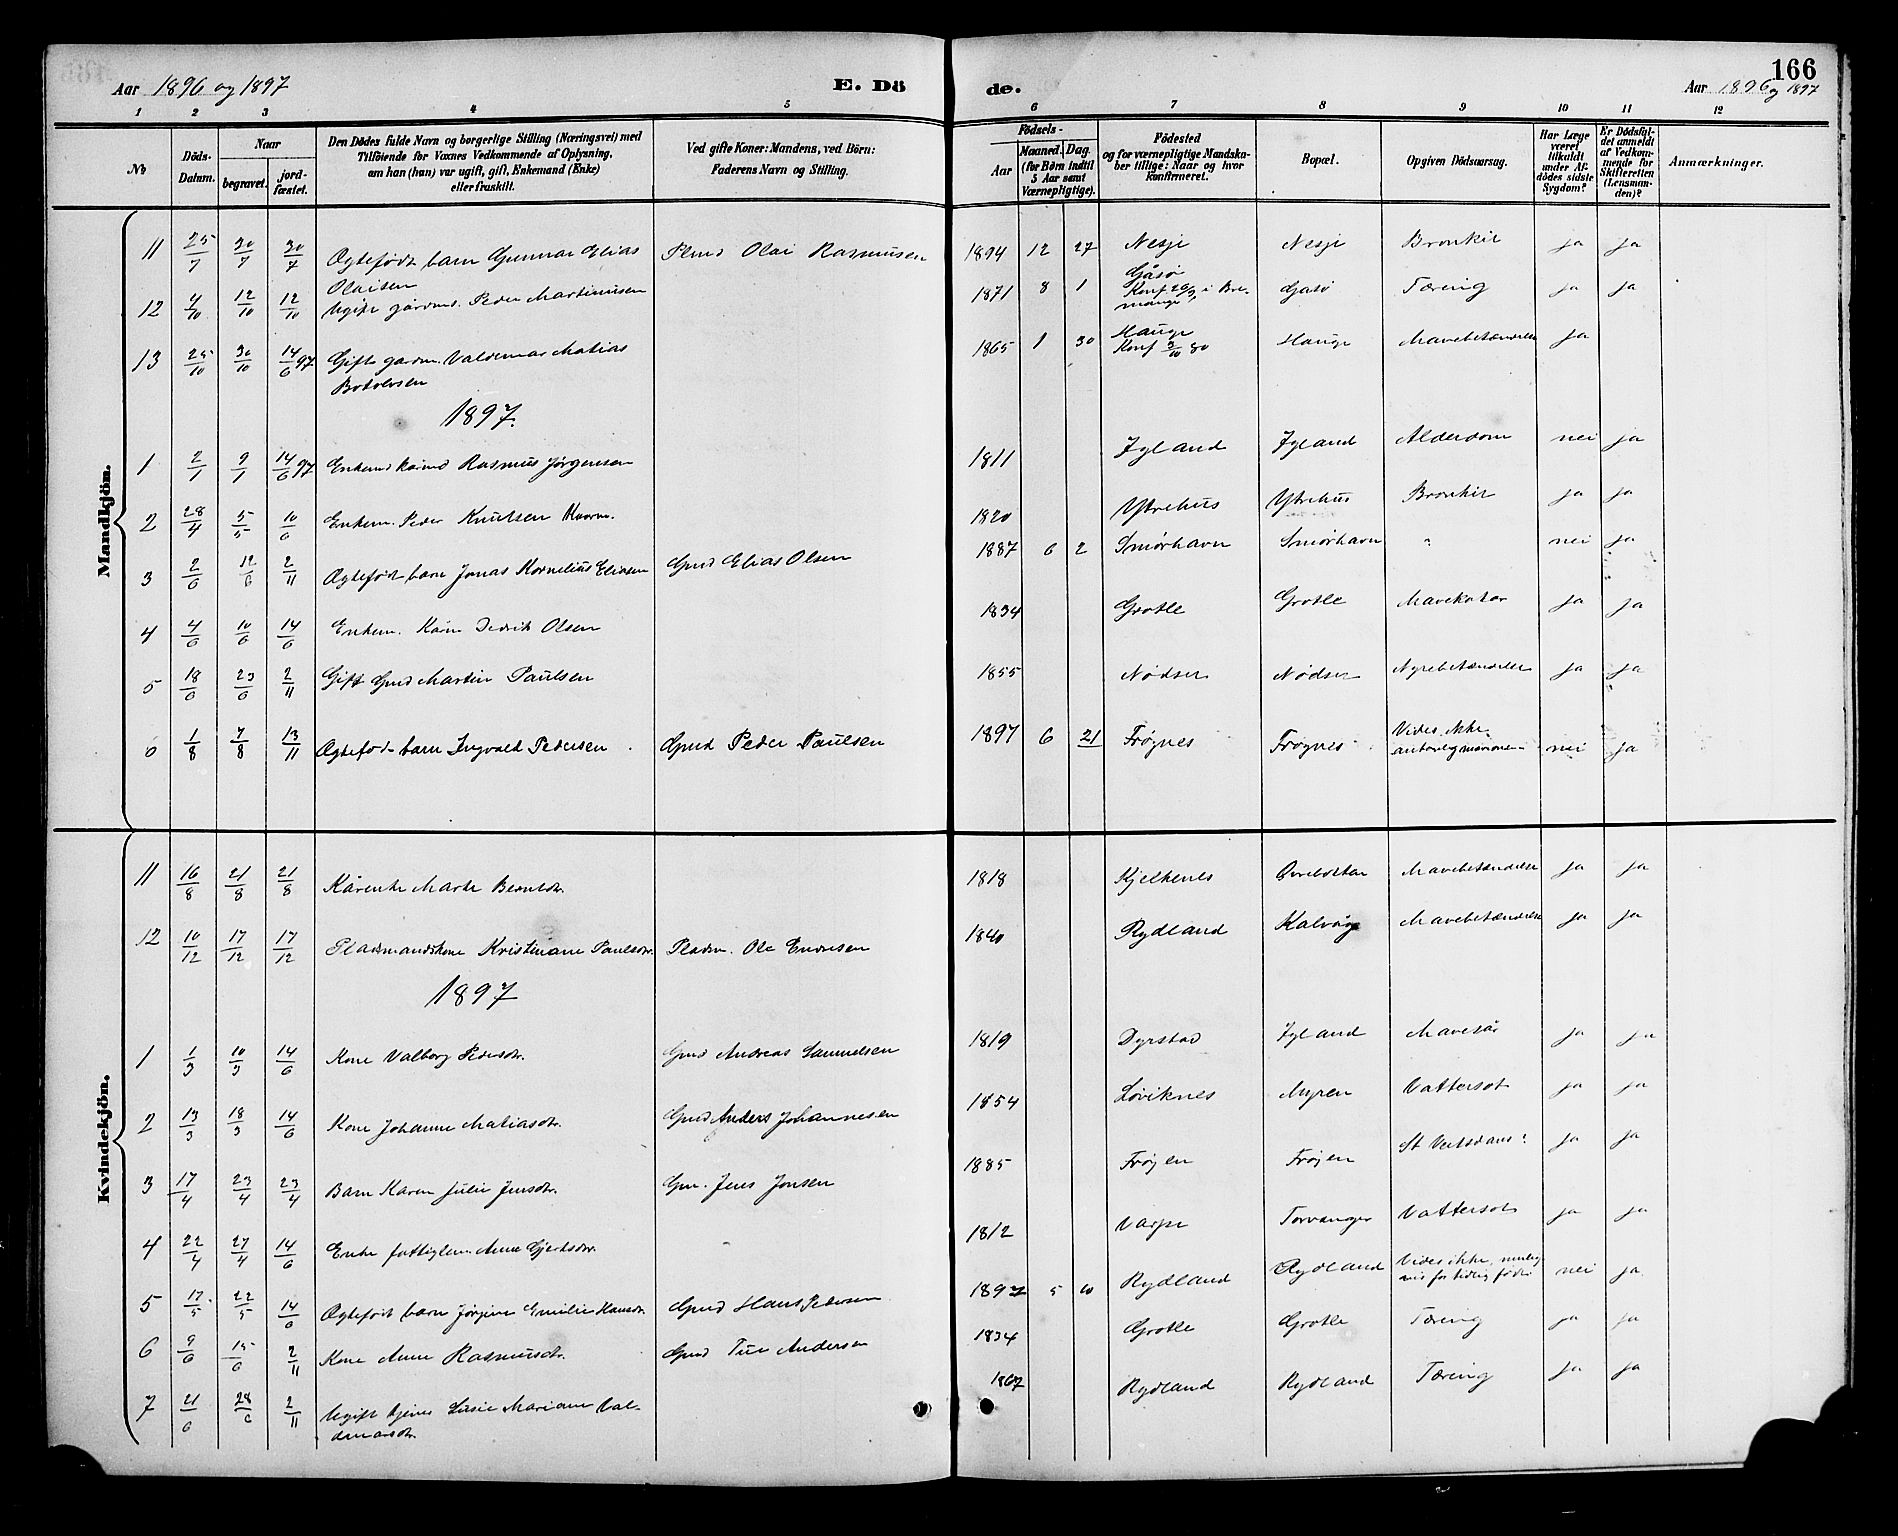 Aar 1896 og 1897
E. Dö
de.
166
Aar 1896 og 1897
1 2 3 4 5 6 7 8 9 10 11 12
No
Döds-Datum.
Naar
begravet.
jord-fæstet.
Den Dödes fulde Navn og borgerlige Stilling (Næringsvei) med
Tilföiende for Voxnes Vedkommende af Oplysning,
om han (hun) var ugift, gift, Enkemand (Enke)
eller fraskilt.
Ved gifte Koner: Mandens, ved Börn:
Faderens Navn og Stilling.
Födsels-
Aar
Maaned. Dag.
(for Börn indtil
5 Aar samt
Værnepligtige).
Födested
og for værnepligtige Mandska-
ber tillige: Naar og hvor
konfirmeret.
Bopæl.
Opgiven Dödsaarsag.
Har Læge
været
tilkaldt
under Af-
dödes sidste
Sygdom?
Er Dödsfal-
det anmeldt
af Vedkom-
mende for
Skifteretten
(Lensman-
den)?
Anmærkninger.
Mandkjön.
11 25/7 30/7 30/7 Ægtefödt barn Gunnar Elias Olaisen Plmd Olai Rasmusen 1894 12 27 Nesje Nesje Bronkit ja ja
12 4/10 12/10 12/10 Ugift gårdm. Peder Martinusen 1871 8 1 Gåsø Konf i Bremanger Gasø Tæring ja ja
13 25/10 30/10 14/6 97 Gift gardm. Valdemar Matias 1865 1 30 Hauge Konf 3/10 80 Hauge Mavebetændelse ja
1897.
1 2/1 9/1 14/6 97 Enkemd kåind Rasmus Jørgensen 1811 Igland Igland Alderdom nei ja
2 28/4 5/5 10/6 Enkem. Peder Knutsen 1820 Ytrehus Ytrehus Bronkit ja ja
3 2/6 12/6 2/11 Ægtefödt barn Jonas Kornelius Eliasen Gmd Elias Olsen 1887 6 2 Smørhavn Smørhavn ? nei ja
4 4/6 10/6 14/6 Enkem. Kårm Didrik Olsen 1834 Grotle Grotle Mavekatar ja ja
5 18/6 23/6 2/11 Gift Gmd Martin Paulsen 1855 Nødset Nødset Nyrebetændelse ja ja
6 1/8 7/8 13/11 Ægtefødt barn Ingvald Pedersen Gmd Peder Paulsen 1897 6 21 Frøynes Frøynes Vides ikke nei ja
Kvindekjön.
11 16/8 21/8 21/8 Kårenke Marte Berntsdr. 1818 Kjelkenes Mavebetændelse ja ja
12 10/12 17/12 17/12 Pladsmandskone Kristiane Paulsdr. Pladsm. Ole Endresen 1840 Rydland Kalvåg Mavebetændelse ja ja
1897
1 1/3 10/3 14/6 Kone Valborg Pedersdr. Gmd Andreas Samuelsen 1819 Dyrstad Igland Mavesår ja ja
2 13/3 18/3 14/6 Kone Johanne Matiasdr. Gmd Anders Johannesen 1854 Løviknes Myren Vattersot ja ja
3 17/4 23/4 23/4 Barn Karen Julie Jensdr. Gm. Jens Jonsen 1885 Frøjen Frøjen St Veitsdans? ja ja
4 22/4 27/4 14/6 Enke fattiglem Anne Gjertsdr. 1812 Varpe Torvanger Vattersot ja ja
5 17/5 22/5 14/6 Ægtefödt barn Jørgine Emilie Hansdr. Gmd Hans Pedersen 1897 5 10 Rydland Rydland Vides ikke, muligvis for tidlig født nei ja
6 9/6 15/6 2/11 Kone Anne Rasmusdr. Gmd Tue Andersen 1834 Grotle Grotle Tæring ja ja
7 21/6 28/6 2/11 Ugift tjener Susie Mariane Valdemarsdr. 1867 Rydland Rydland Tæring ja ja